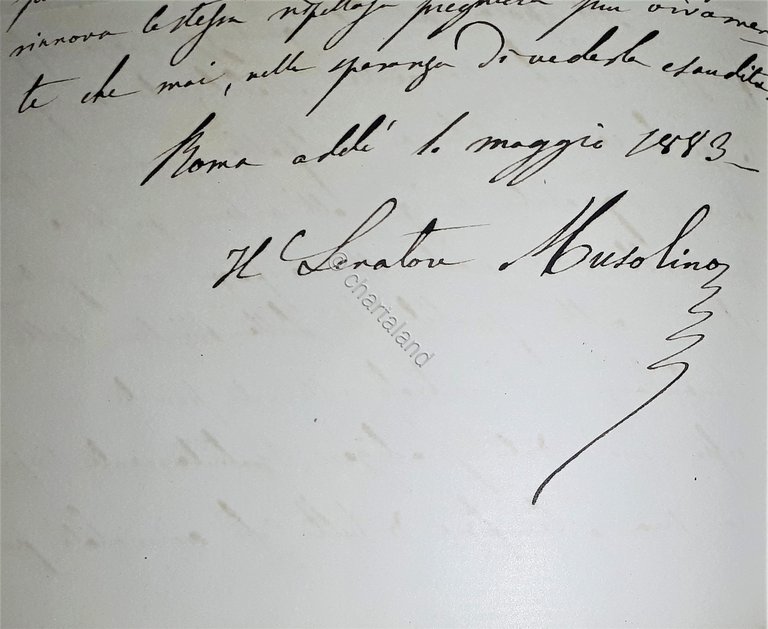 rinnova la stessa rispettosa preghiera più vivamen-
te che mai, nella speranza di vederla esaudita.
Roma addì 1. maggio 1883_
Il Senatore Musolino
© chartaland